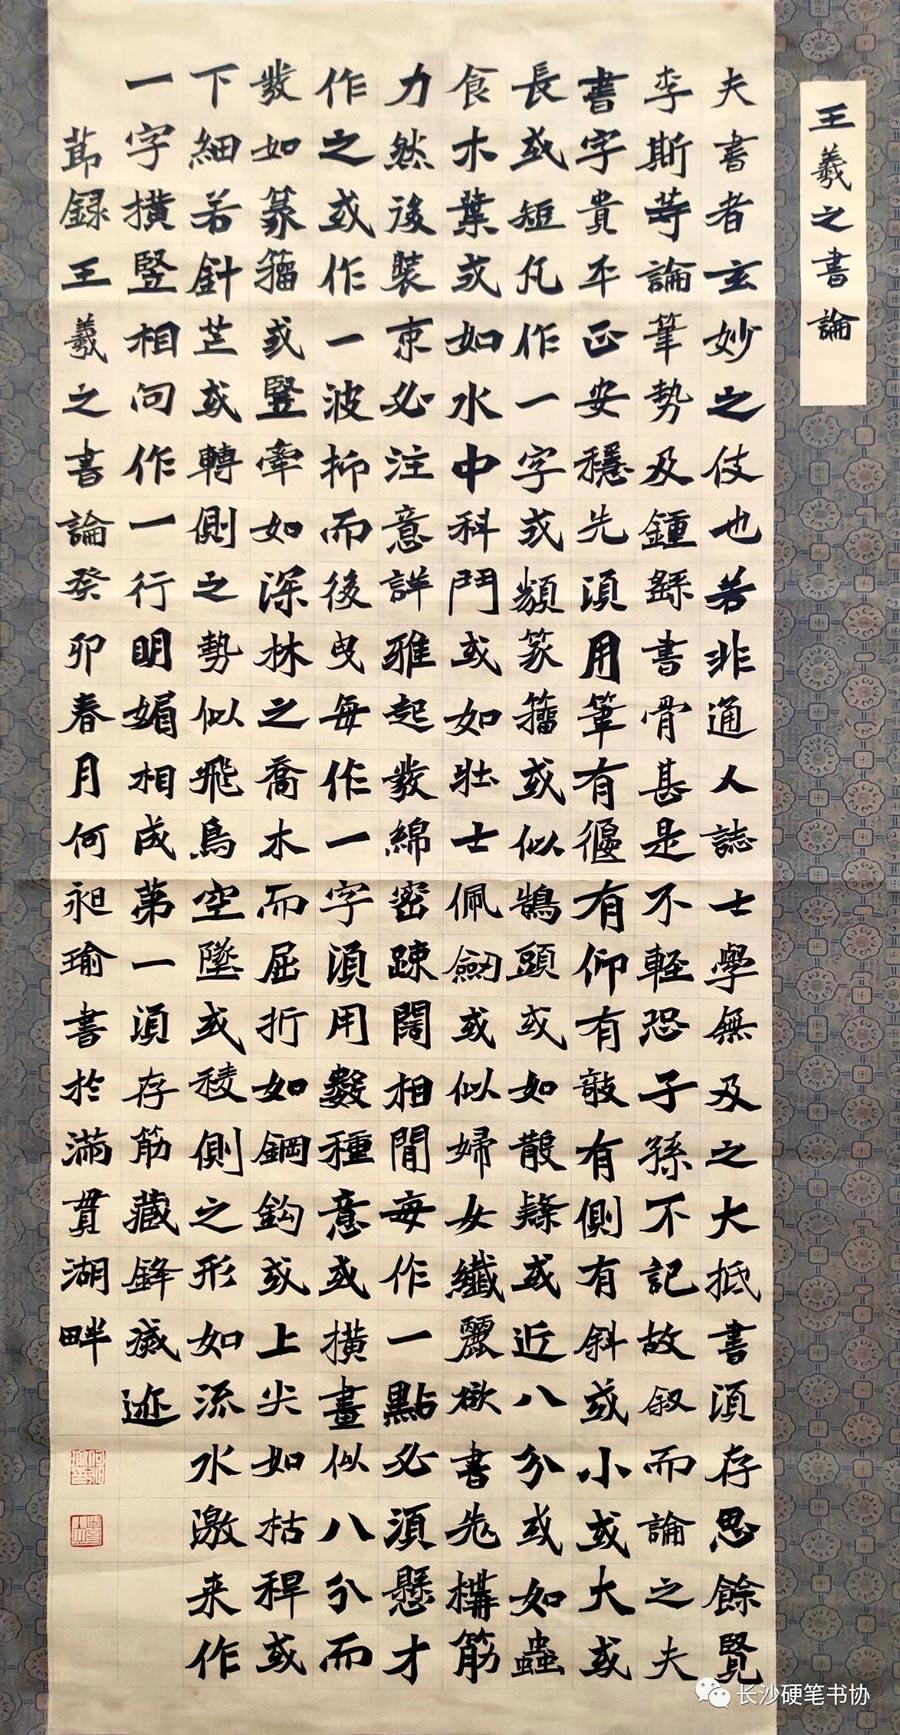 王羲之書論
夫書者玄妙之伎也若非通人誌士學無及之大抵書須存思餘覽
李斯等論筆勢及鍾繇書骨甚是不輕恐子孫不記故叙而論之夫
書字貴平正安穩先須用筆有偃有仰有敧有側有斜或小或大或
長或短凡作一字或類篆籀或似鵠頭或如散隸或近八分或如蟲
食木葉或如水中科鬥或如壯士佩劍或似婦女纖麗欲書先構筋
力然後裝束必注意詳雅起發綿密疎闊相間每作一點必須懸才
作之或作一波抑而後曳每作一字須用數種意或橫畫似八分而
發如篆籀或豎牽如深林之喬木而屈折如鋼鈎或上尖如枯稈或
下細若針芒或轉側之勢似飛鳥空墜或稜側之形如流水激来作
一字橫豎相向作一行明媚相成第一須存筋藏鋒滅迹
節録王羲之書論癸卯春月何昶瑜書於滿貫湖畔
长沙硬笔书协